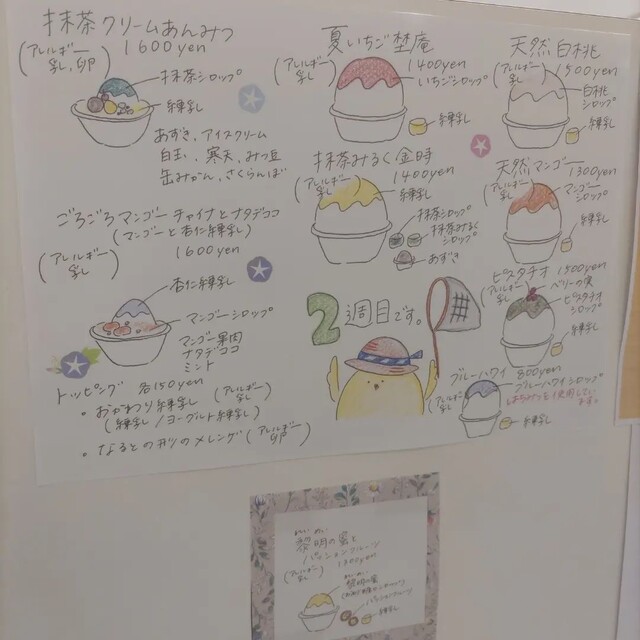 抹茶クリームあんみつ
(アレルギー 乳、卵) 1600yen
抹茶シロップ
練乳
あずき、アイスクリーム
白玉、寒天、みつ豆
缶みかん、さくらんぼ
ごろごろマンゴーチャイナとナタデココ
(マンゴーと杏仁練乳)
(アレルギー 乳) 1600yen
杏仁練乳
マンゴーシロップ
マンゴー果肉
ナタデココ
ミント
トッピング 各150yen
・おかわり練乳 (アレルギー 乳)
(練乳/ヨーグルト練乳)
・なるとの形のメレンゲ (アレルギー 卵)
夏いちご埜庵
(アレルギー 乳) 1400yen
いちごシロップ
練乳
抹茶みるく金時
(アレルギー 乳) 1400yen
練乳
抹茶シロップ
抹茶みるくシロップ
あずき
2週目です。
天然白桃
(アレルギー 乳) 1500yen
白桃シロップ
練乳
天然マンゴー
(アレルギー 乳) 1300yen
マンゴーシロップ
練乳
ピスタチオ 1500yen
(アレルギー 乳)
ベリーの実
ピスタチオシロップ
練乳
ブルーハワイ 800yen
(アレルギー 乳)
ブルーハワイシロップ
はちみつを使用しています。
練乳
れいめい
黎明の蜜と
パッションフルーツ
(アレルギー 乳) 1300yen
れいめい
黎明の蜜
パッションフルーツ
練乳